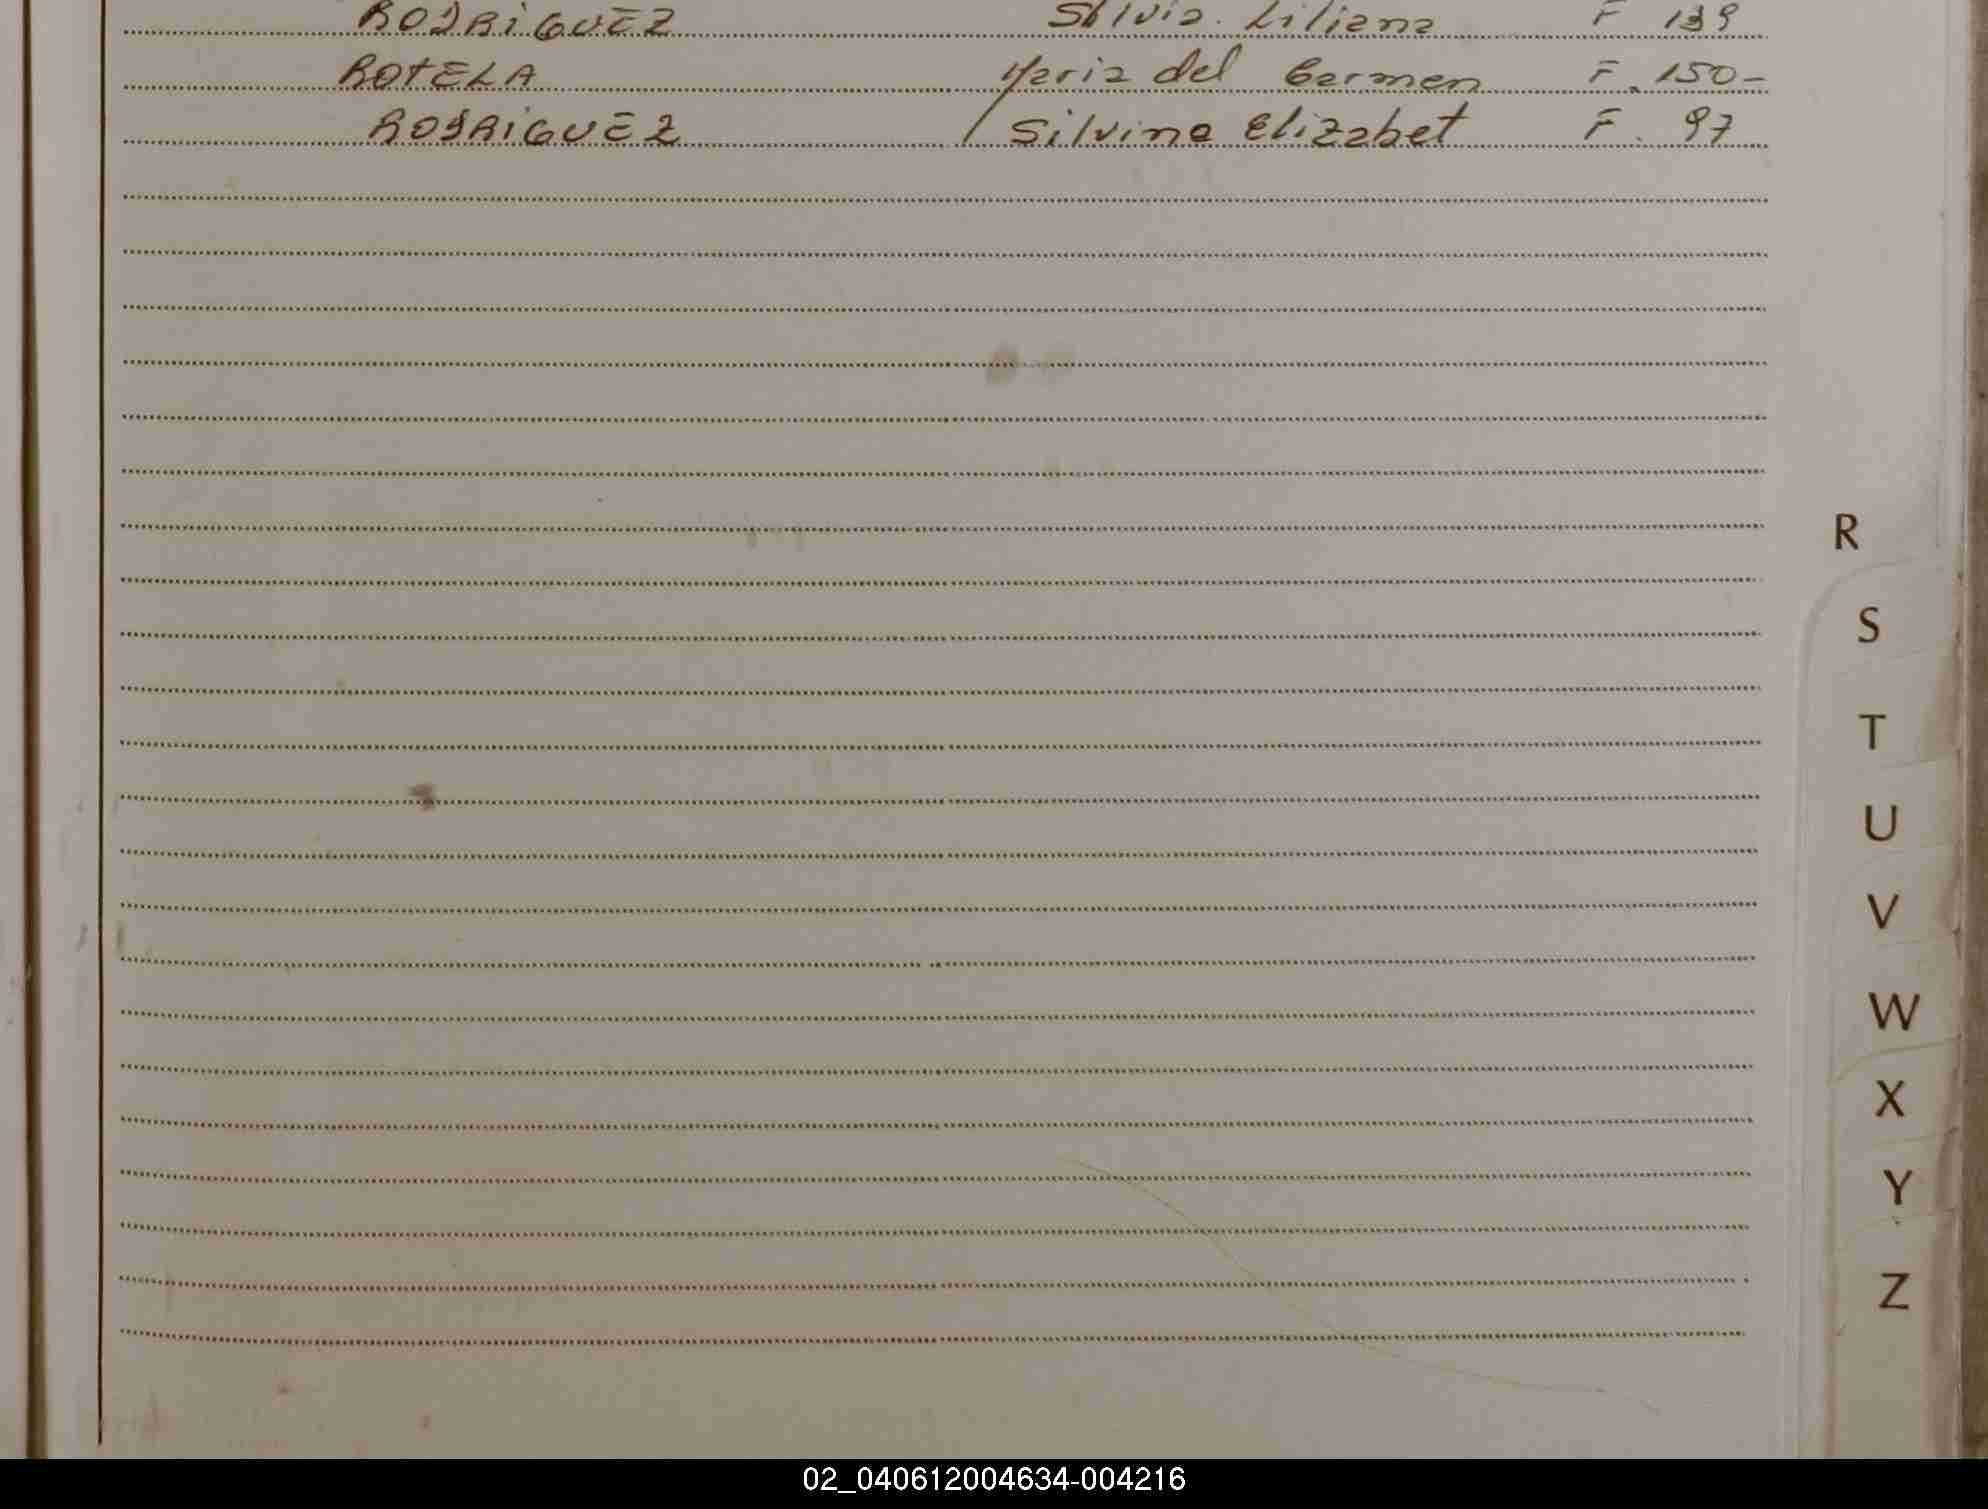 RODRIGUEZ Silvia Liliana F 139
ROTELA Maria del Carmen F. 150-
RODRIGUEZ Silvina Elizabet F. 97
R
S
T
U
V
W
X
Y
Z
02_040612004634-004216